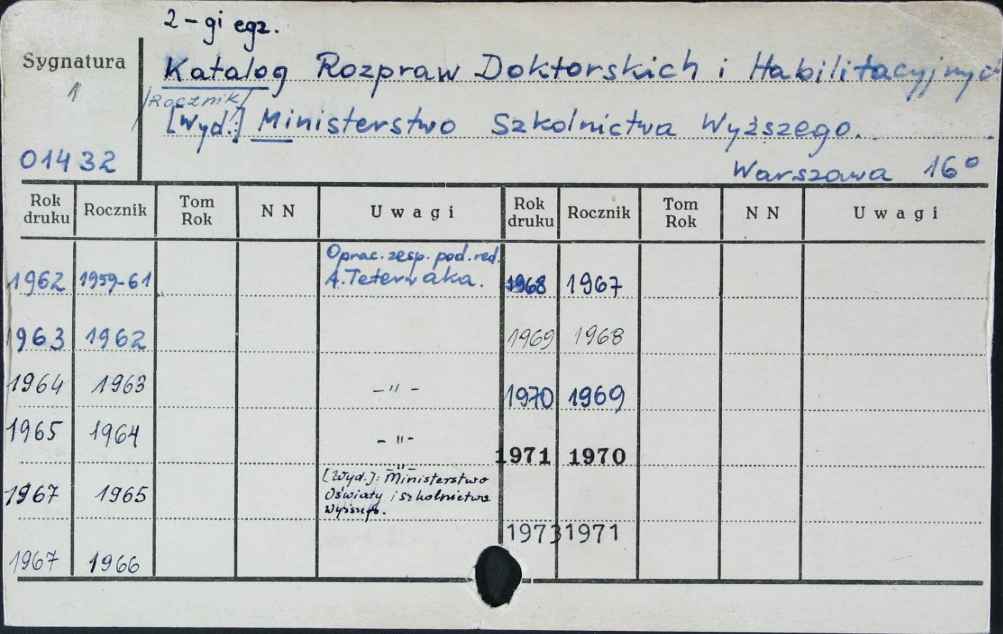 2-gi egz.
Sygnatura
1
Katalog Rozpraw Doktorskich i Habilitacyjnych
/Rocznik/
[Wyd.:] Ministerstwo Szkolnictwa Wyższego.
01432
Warszawa 16°
Rok druku Rocznik Tom Rok N N Uwagi Rok druku Rocznik Tom Rok N N Uwagi
Oprac. zesp. pod. red.
1962 1959-61 A. Teterwaka. 1968 1967
1963 1962 1969 1968
1964 1963 -"- 1970 1969
1965 1964 -"- 1971 1970
-"-
[Wyd.]: Ministerstwo
1967 1965 Oświaty i szkolnictwa
Wyższego.
1973 1971
1967 1966